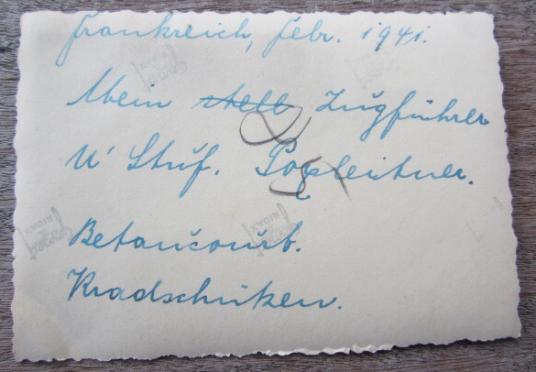 Frankreich, Febr. 1941.
Mein stell Zugführer
U' Stuf. Pogleitner.
Betancourt.
Kradschützen.